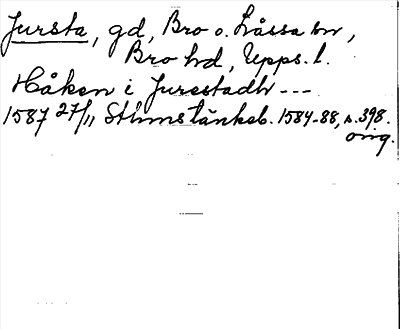 Jursta, gd, Bro o. Låssa sn,
Bro hd, Upps. l.
Håken i Jurestadh ---
1587 27/11 Sthms tänkeb. 1584-88, s. 398.
orig.